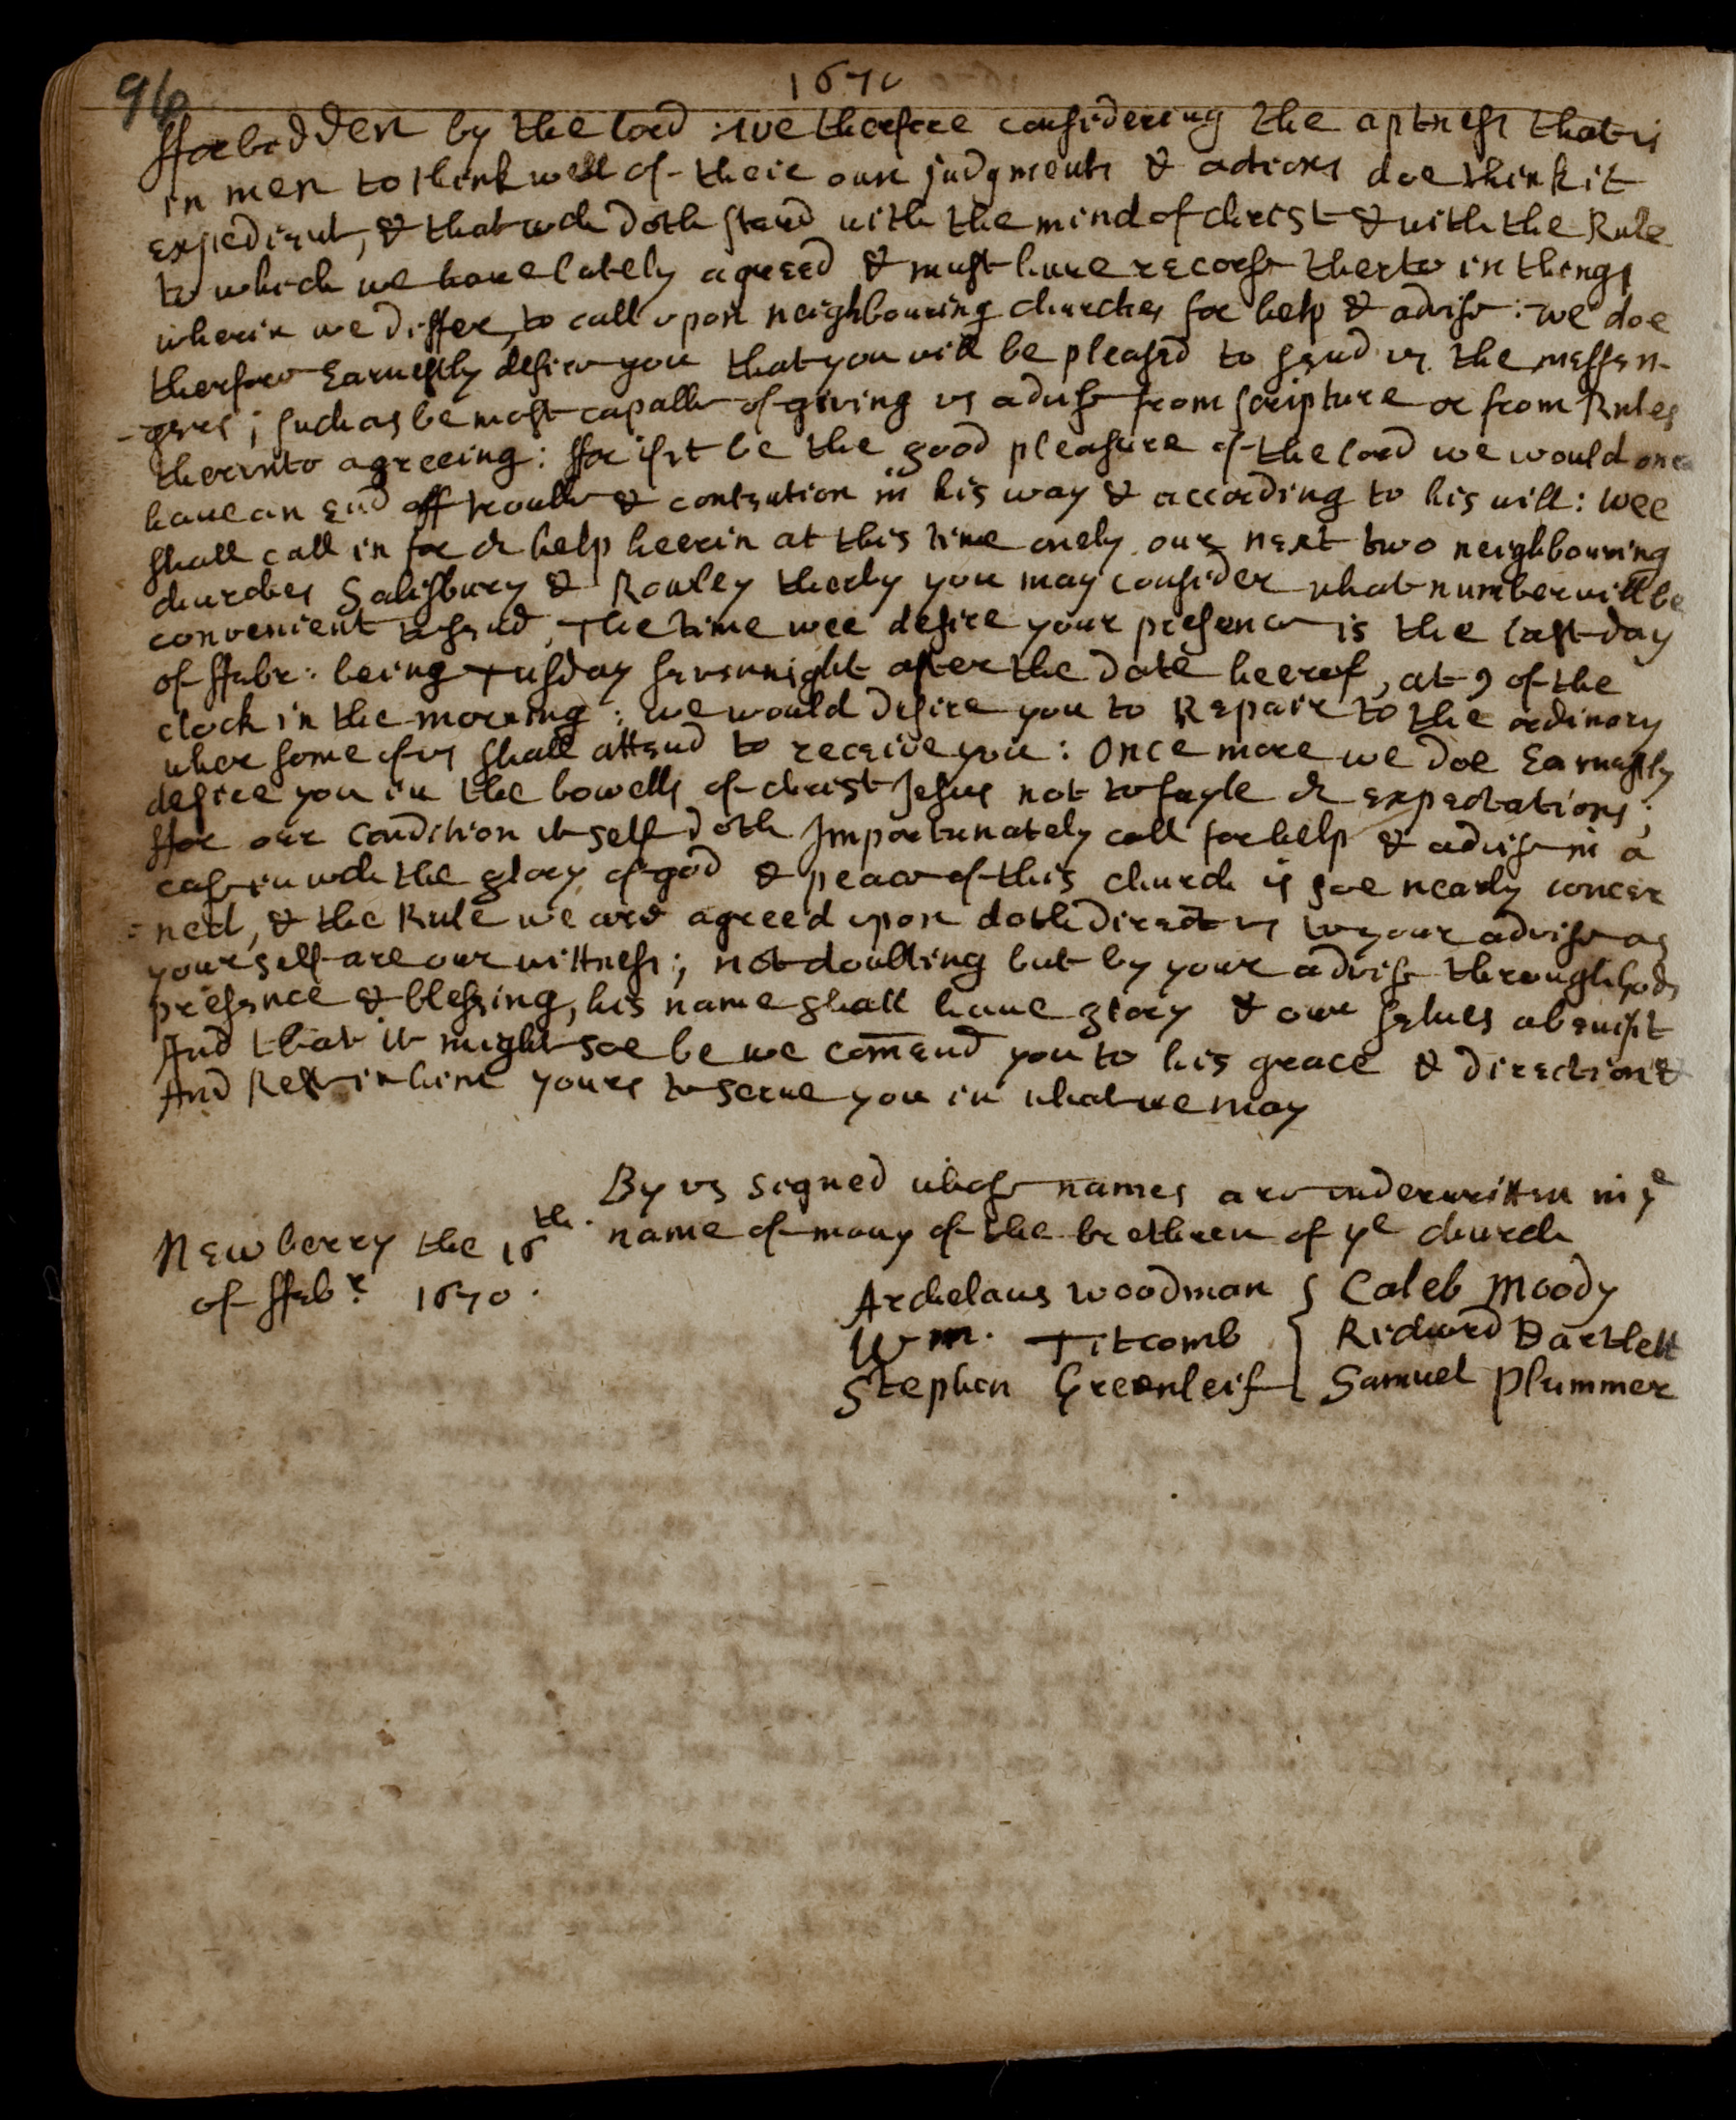 96
1670
fforbidden by the lord : we therfore considering the aptness that is
in men to think well of their oun judgments & actions doe think it
expedient, & that wch doth stand with the mind of christ & with the Rule
to which we haue lately agreed & must haue recorse therto in things
wherin we differ, to call upon neighbouring churches for help & advise : we doe
therfore Earnestly desire you that you will be pleased to send us the messen-
-gers ; such as be most capable of giving us aduise from scripture or from Rules
therunto agreeing : ffor if it be the good pleasure of the lord we would once
haue an end off trouble & contention in his way & according to his will : wee
shall call in for or help heerin at this time onely our next two neighbouring
churches Salisbury & Rowley therby you may consider what number will be
convenient to send, The time wee desire your presence is the last day
of ffebr : being Tusday sevennight after the date heerof, at 9 of the
clock in the morning : we would desire you to Repair to the ordinary
wher some of us shall attend to receive you : Once more we doe Earnestly
desire you in the bowells of christ Jesus not to fayle or expectations ;
ffor our condition it self doth Importunately call for help & advise in a
case in wch the glory of god & peace of this church is soe nearly concer
= ned, & the Rule we are agreed upon doth direct us to your advise as
your self are our wittness ; not doubting but by your advise through gods
presence & blessing, his name shall haue glory & our selues abenifit
And that it might soe be we comend you to his grace & direction &
And Rest in him yours to serue you in what we may
By us signed whose names are underwritten in ye
name of many of the brethren of ye church
Newberry the 16th.
of ffebr. 1670.
Archelaus woodman { Caleb Moody
Wm. Titcomb { Richard Bartlett
Stephen Greenleif { Samuel Plummer